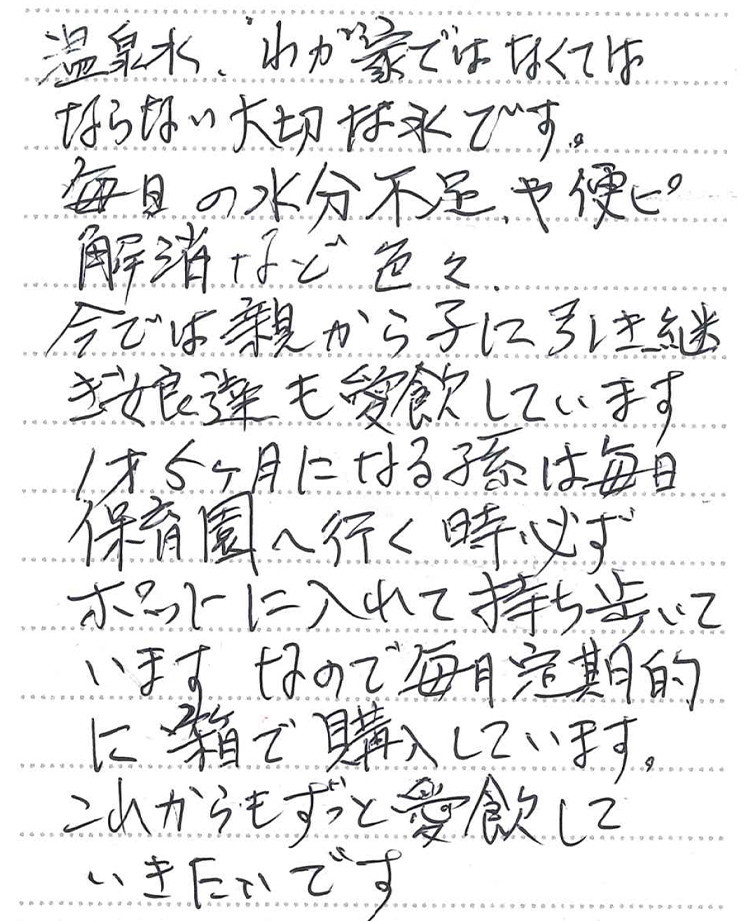 温泉水、わが家ではなくては
ならない大切な水です。
毎日の水分不足、や便ピ
解消など色々、
今では親から子に引き継
ぎ娘達も愛飲しています
1才5ヶ月になる孫は毎日
保育園へ行く時必ず
ポットに入れて持ち歩いて
います なので毎月定期的
に箱で購入しています。
これからもずっと愛飲して
いきたいです